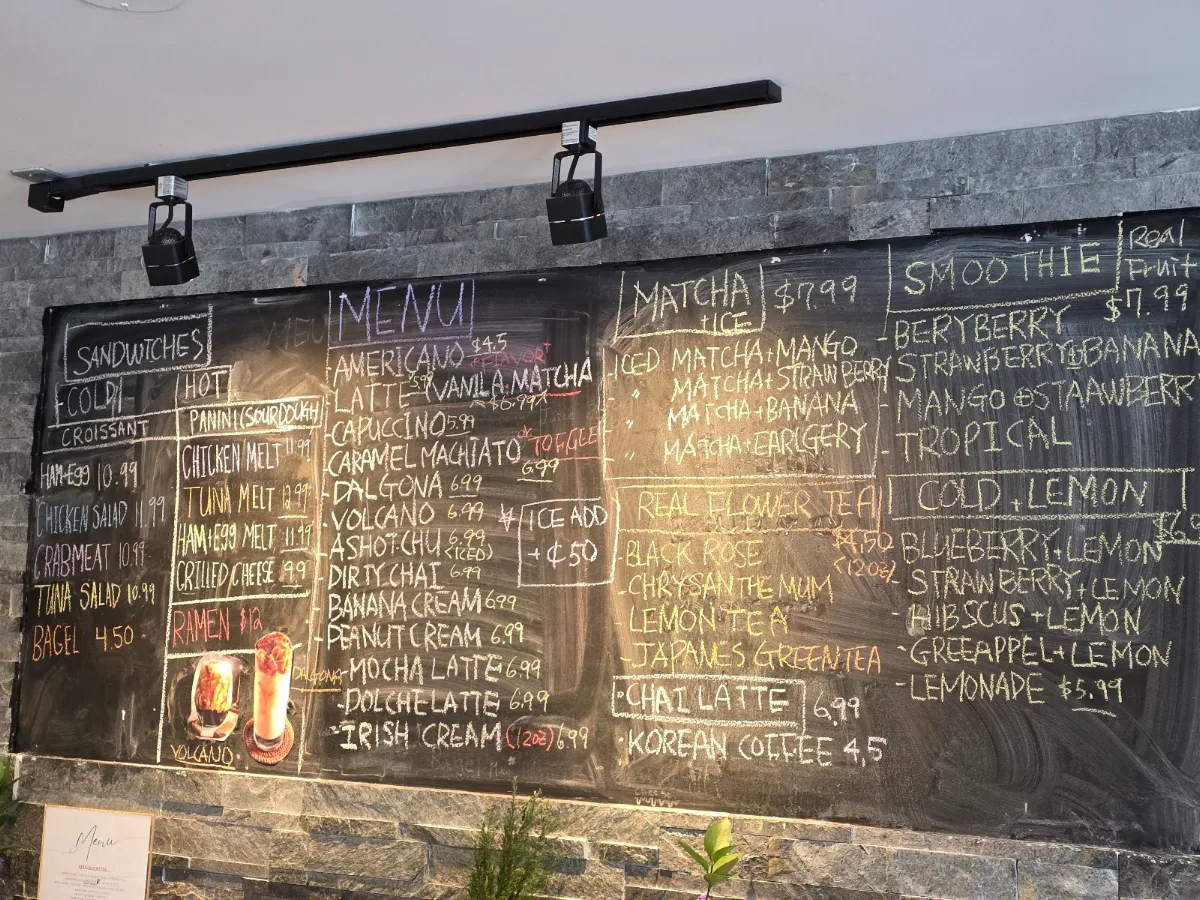 SANDWTCHES
COLD
CROISSANT
HAM+EGG 10.99
CHICKEN SALAD 11.99
CRABMEAT 10.99
TUNA SALAD 10.99
BAGEL 4.50
HOT
PANINI (SOURDOUGH)
CHICKEN MELT 11.99
TUNA MELT 12.99
HAM+EGG MELT 11.99
CRILLED CHEESE 9.99
RAMEN $12
VOLCANO
DALGONA
MENU
-AMERICANO $4.5
-LATTE 5.99 (VANILA.MATCHA
$6.99
-CAPUCCINO 5.99
-CARAMEL MACHIATO 6.99
* TOFGLE
-DALGONA 6.99
-VOLCANO 6.99
-ASHOT-CHU 6.99
(ICED)
-DIRTY CHAI 6.99
-BANANA CREAM 6.99
-PEANUT CREAM 6.99
-MOCHA LATTE 6.99
-DOLCHE LATTE 6.99
-IRISH CREAM (12OZ) 6.99
ICE ADD
+ ¢50
MATCHA
+ICE
$7.99
-ICED MATCHA+MANGO
- " MATCHA+STRAWBERRY
- " MATCHA+BANANA
- " MATCHA+EARLGERY
REAL FLOWER TEA
$4.50
(12OZ)
-BLACK ROSE
-CHRYSANTHEMUM
-LEMON TEA
-JAPANES GREEN TEA
·CHAI LATTE 6.99
·KOREAN COFFEE 4,5
SMOOTHIE
Real
Fruit
$7.99
-BERYBERRY
-STRAWBERRY⊕BANANA
-MANGO⊕STAAWBERR
-TROPICAL
COLD+LEMON
-BLUEBERRY+LEMON
-STRAWBERRY+LEMON
-HIBSCUS+LEMON
-GREEAPPEL+LEMON
-LEMONADE $5.99
Menu